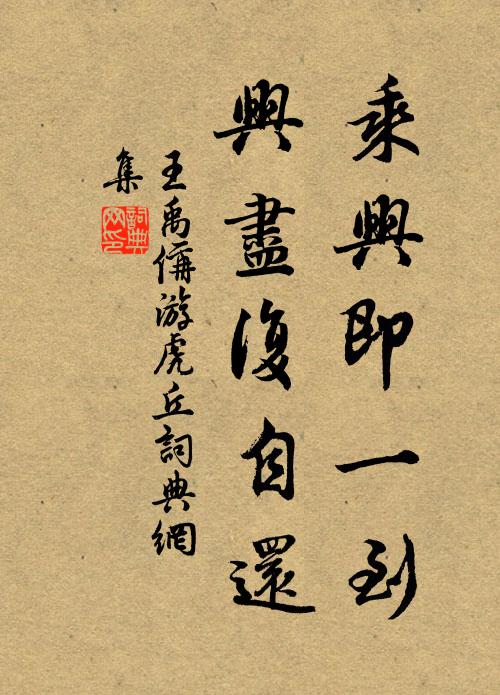 乘興即一到
興盡復自還
王禹偁游虎丘詞典網
集
詞典网印